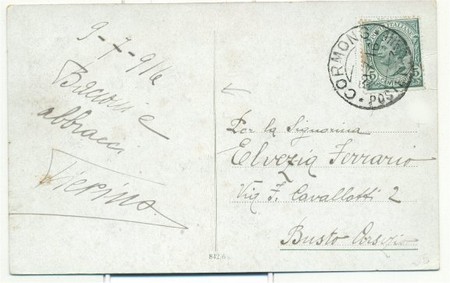 9-7-916
Bacioni e
abbracci
Pierino
CORMONS
POSTE
Per la Signorina
Elvezia Ferrario
Via F. Cavallotti 2
Busto Arsizio